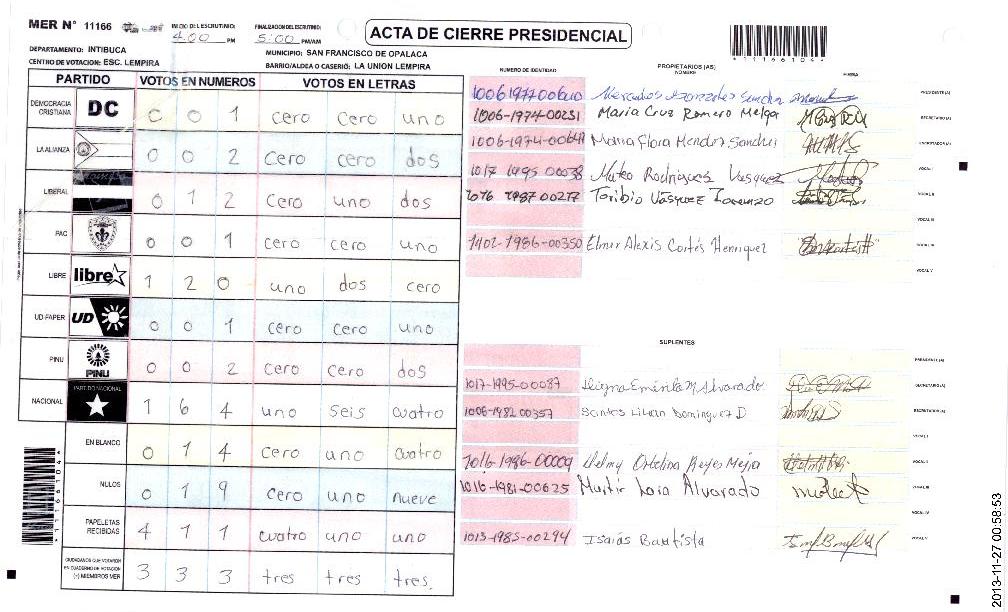 MER N° 11166
INICIO DEL ESCRUTINIO: 4:00 PM
FINALIZACION DEL ESCRUTINIO: 5:00 PM/AM
ACTA DE CIERRE PRESIDENCIAL
*11166104*
DEPARTAMENTO: INTIBUCA
MUNICIPIO: SAN FRANCISCO DE OPALACA
CENTRO DE VOTACION: ESC. LEMPIRA
BARRIO/ALDEA O CASERIO: LA UNION LEMPIRA
PARTIDO VOTOS EN NUMEROS VOTOS EN LETRAS
DEMOCRACIA CRISTIANA DC 0 0 1 cero cero uno
LA ALIANZA 0 0 2 cero cero dos
LIBERAL 0 1 2 cero uno dos
PAC 0 0 1 cero cero uno
LIBRE libre 1 2 0 uno dos cero
UD-FAPER UD 0 0 1 cero cero uno
PINU PINU 0 0 2 cero cero dos
NACIONAL PARTIDO NACIONAL 1 6 4 uno seis cuatro
EN BLANCO 0 1 4 cero uno cuatro
NULOS 0 1 9 cero uno nueve
PAPELETAS RECIBIDAS 4 1 1 cuatro uno uno
CIUDADANOS QUE VOTARON EN CUADERNO DE VOTACION (+) MIEMBROS MER 3 3 3 tres tres tres.
NUMERO DE IDENTIDAD PROPIETARIOS (AS) NOMBRE FIRMA
PRESIDENTE (A)
1006-1974-00231 Maria Cruz Romero Melga SECRETARIO (A)
Maria Flora Mendez Sanchez ESCRUTADOR (A)
1017 1995 00038 Mateo Rodriguez Vasquez VOCAL I
Toribio Vasquez Lorenzo VOCAL II
VOCAL III
1402-1986-00350 Elmer Alexis Cortés Henriquez VOCAL IV
VOCAL V
SUPLENTES
PRESIDENTE (A)
1017-1995-00087 Alvarado SECRETARIO (A)
1006-1982 00357 Santos Lilian Dominguez D ESCRUTADOR (A)
VOCAL I
1016-1986-00009 Reyes Mejia VOCAL II
1016-1981-00625 Martir Lara Alvarado VOCAL III
VOCAL IV
1013-1985-00294 Isaias Bautista VOCAL V
*11166104*
2013-11-27 00:58:53